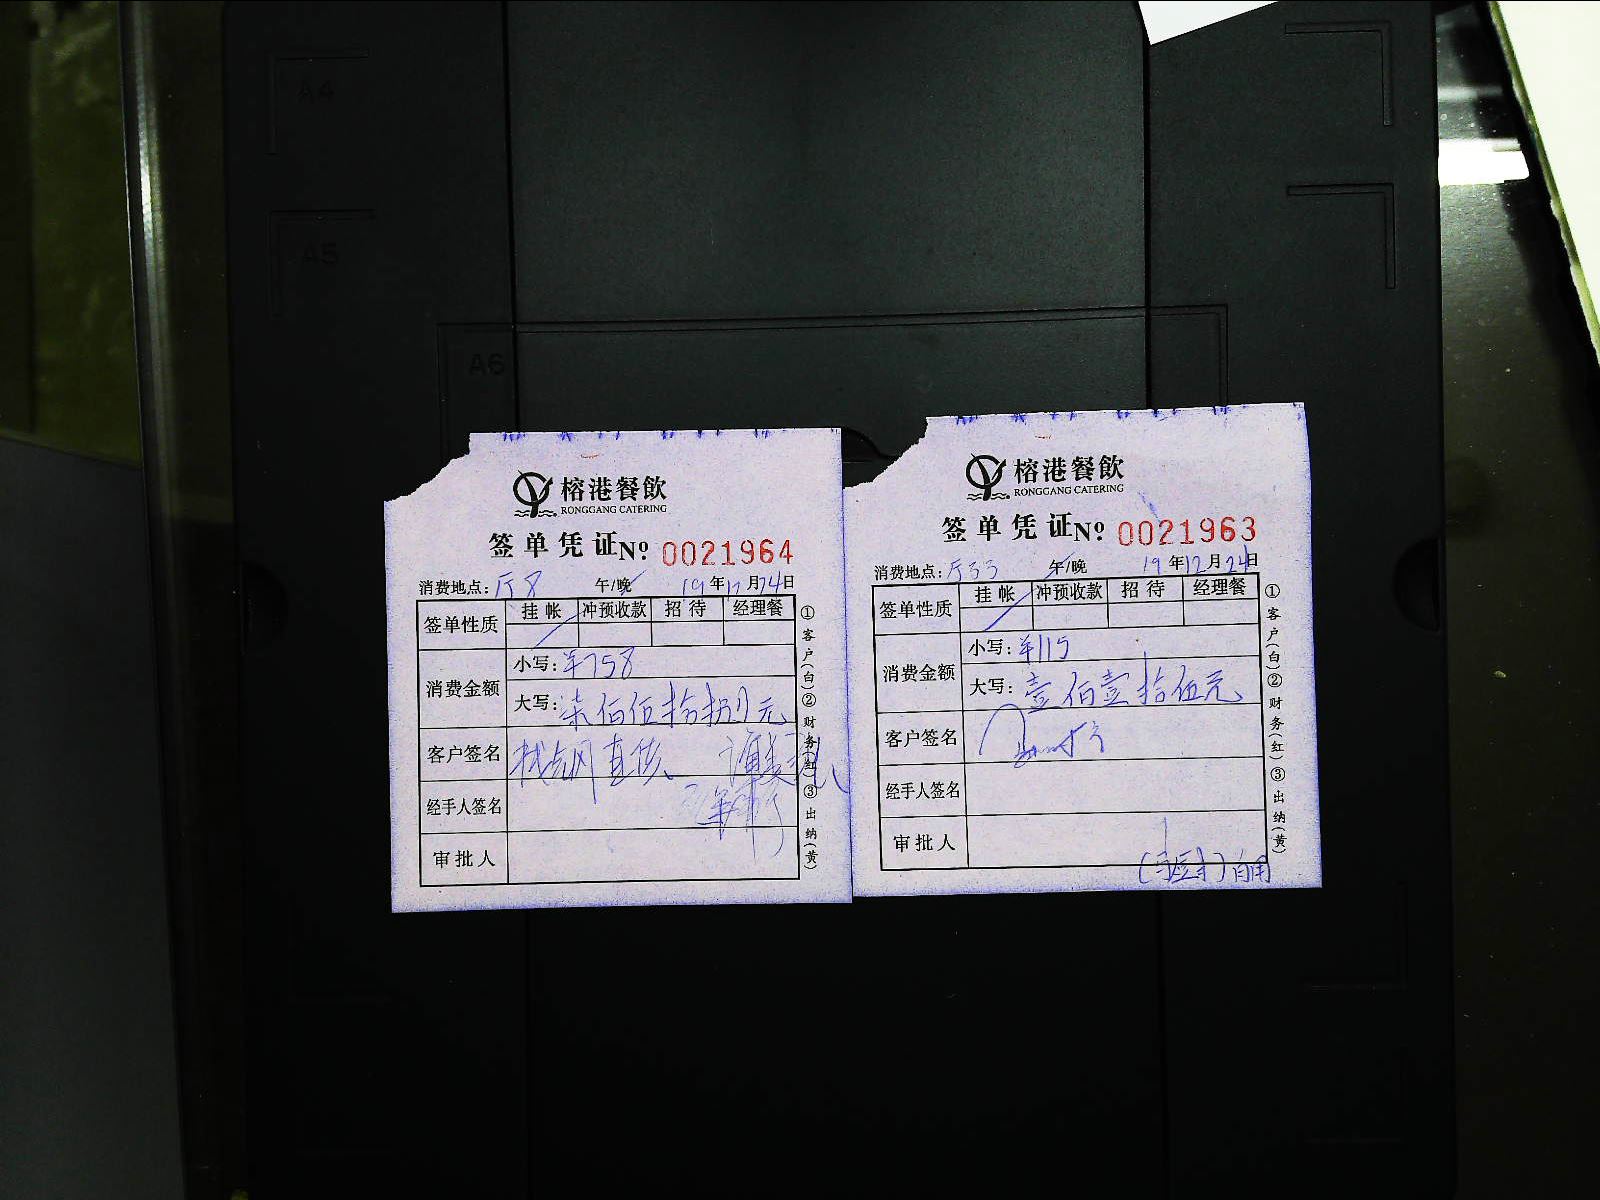 A4
A5
A6
榕港餐飲
RONGGANG CATERING
签单凭证 Nº 0021964
消费地点: 厅8 午/晚 19年12月24日
签单性质 挂帐 冲预收款 招待 经理餐
消费金额 小写: ¥758
大写: 柒佰伍拾捌元
客户签名
经手人签名
审批人
①客户(白)②财务(红)③出纳(黄)
榕港餐飲
RONGGANG CATERING
签单凭证 Nº 0021963
消费地点: 厅33 午/晚 19年12月24日
签单性质 挂帐 冲预收款 招待 经理餐
消费金额 小写: ¥115
大写: 壹佰壹拾伍元
客户签名
经手人签名
审批人
自用
①客户(白)②财务(红)③出纳(黄)